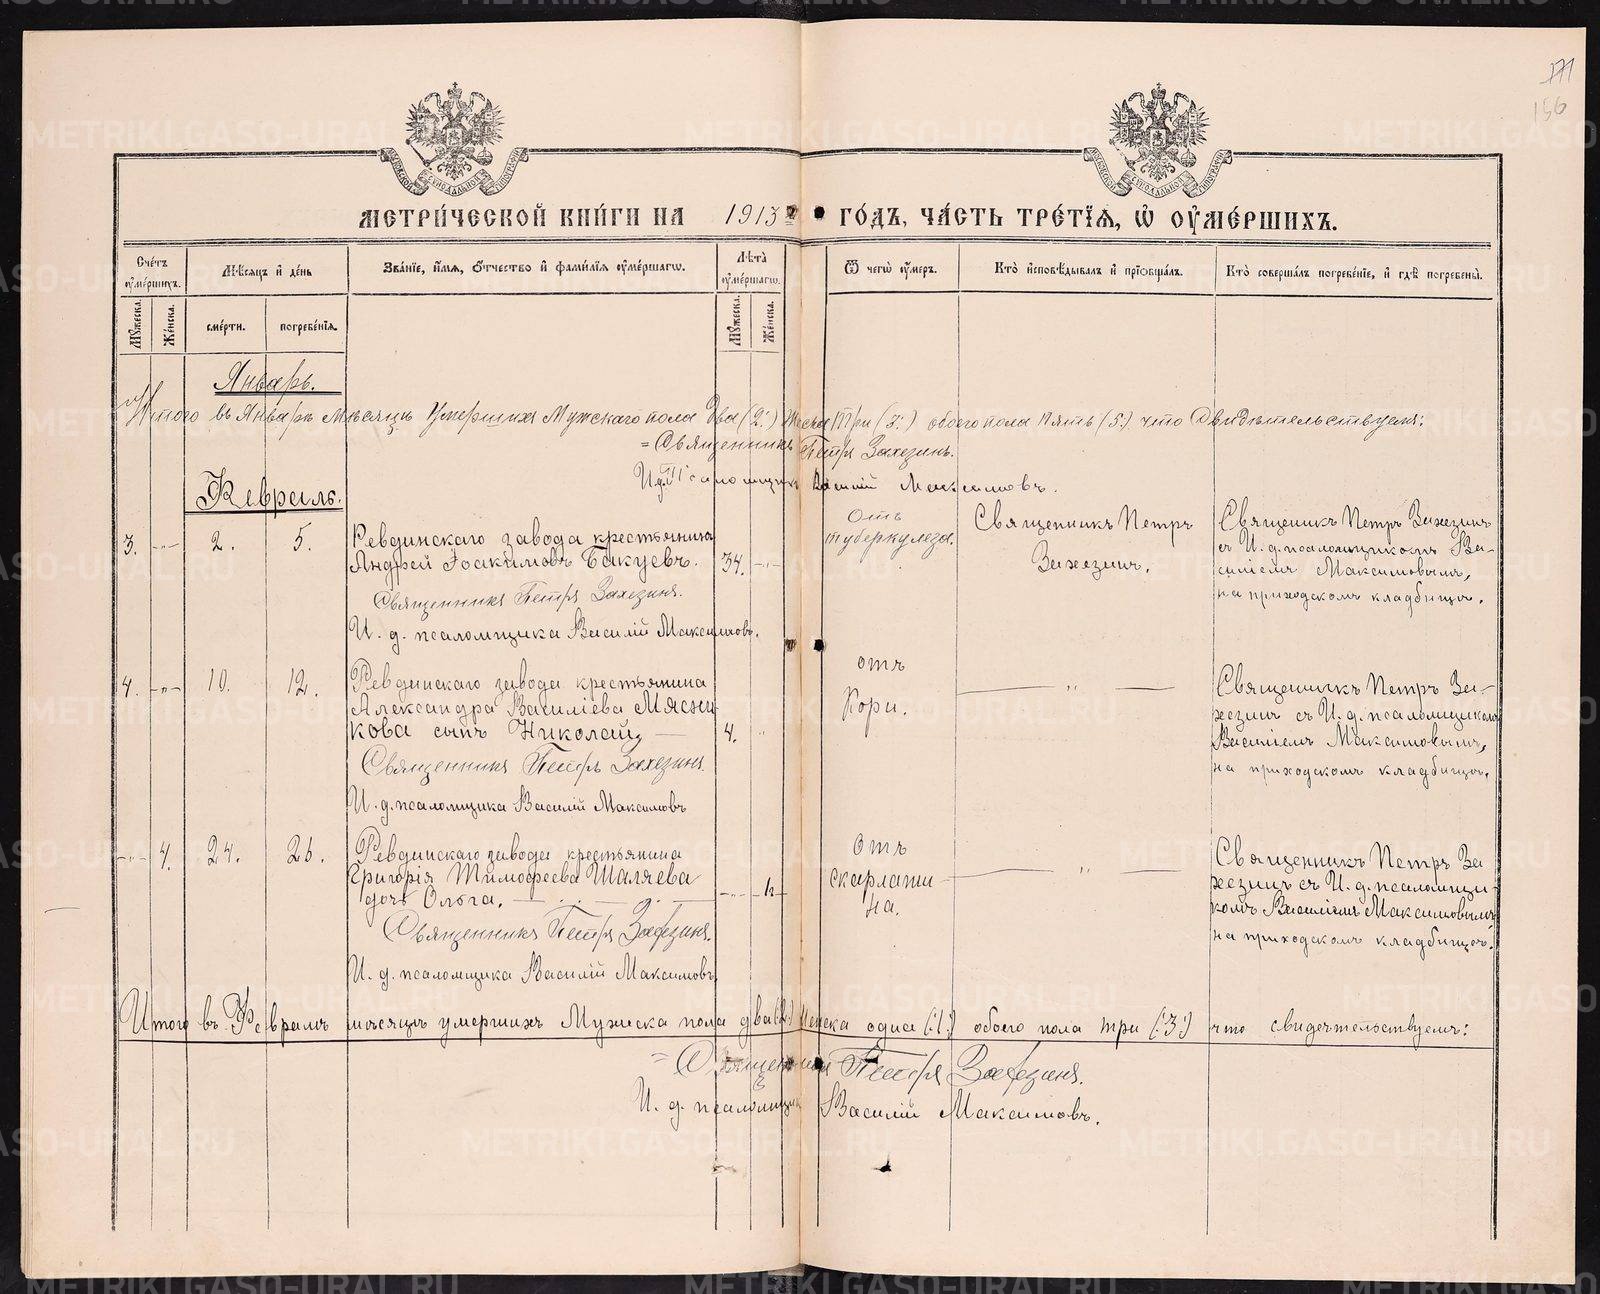 171
156
МОСКОВСКОЙ СѴНОДАЛЬНОЙ ТИПОГРАФІИ
МОСКОВСКОЙ СѴНОДАЛЬНОЙ ТИПОГРАФІИ
МЕТРИ́ЧЕСКОЙ КНИ́ГИ НА 1913 ГО́ДЪ, ЧА́СТЬ ТРЕ́ТІѦ, Ѡ҆ ОУ҆МЕ́РШИХЪ.
Сче́тъ оу҆ме́ршихъ.
Мѣ́сяцъ и҆ де́нь
Зва́ніе, и҆́мѧ, о҆́тчество и҆ фами́лїѧ оу҆ме́ршагѡ.
Лѣ́та оу҆ме́ршагѡ.
Ѿ чегѡ̀ оу҆́меръ.
Кто̀ и҆сповѣ́дывалъ и҆ прїѡбща́лъ.
Кто̀ соверша́лъ погребе́ніе, и҆ гдѣ̀ погребены̀.
Мꙋ́жеска.
Же́нска.
сме́рти.
погребе́нїѧ.
Мꙋ́жеска.
Же́нска.
Январь.
Итого въ Январѣ мѣсяцѣ умершихъ Мужскаго пола два (2:) Женска Три (3:) обоего пола пять (5:) что свидѣтельствуемъ:
= Священникъ Петръ Захезинъ.
И.д. псаломщика Василій Максимовъ.
Февраль.
3. -"- 2. 5.
Ревдинскаго завода крестьянинъ
Андрей Іоакимовъ Бакуевъ.
34. -"-
Священникъ Петръ Захезинъ.
И. д. псаломщика Василій Максимовъ.
Отъ
туберкулеза.
Священникъ Петръ
Захезинъ.
Священникъ Петръ Захезинъ
съ И. д. псаломщикомъ Ва-
силіемъ Максимовымъ,
на приходскомъ кладбищѣ.
4. -"- 10. 12.
Ревдинскаго завода крестьянина
Александра Василіева Мясни
кова сынъ Николай,
4. "
Священникъ Петръ Захезинъ.
И. д. псаломщика Василій Максимовъ
отъ
Кори.
"
Священникъ Петръ За-
хезинъ съ И. д. псаломщикомъ
Василіемъ Максимовымъ,
на приходскомъ кладбищѣ.
-"- 4. 24. 26.
Ревдинскаго завода крестьянина
Григорія Тимофеева Шаляева
дочь Ольга.
-"-
Священникъ Петръ Захезинъ.
И. д. псаломщика Василій Максимовъ
Отъ
скарлати-
на.
"
Священникъ Петръ За
хезинъ съ И. д. псаломщи-
комъ Василіемъ Максимовымъ
на приходскомъ кладбищѣ.
Итого въ Февралѣ мѣсяцѣ умершихъ Мужеска пола два (2:) Женска одна (:1:) обоего пола три (:3:) что свидѣтельствуемъ:
= Священникъ Петръ Захезинъ.
И. д. псаломщика Василій Максимовъ.
METRIKI.GASO-URAL.RU